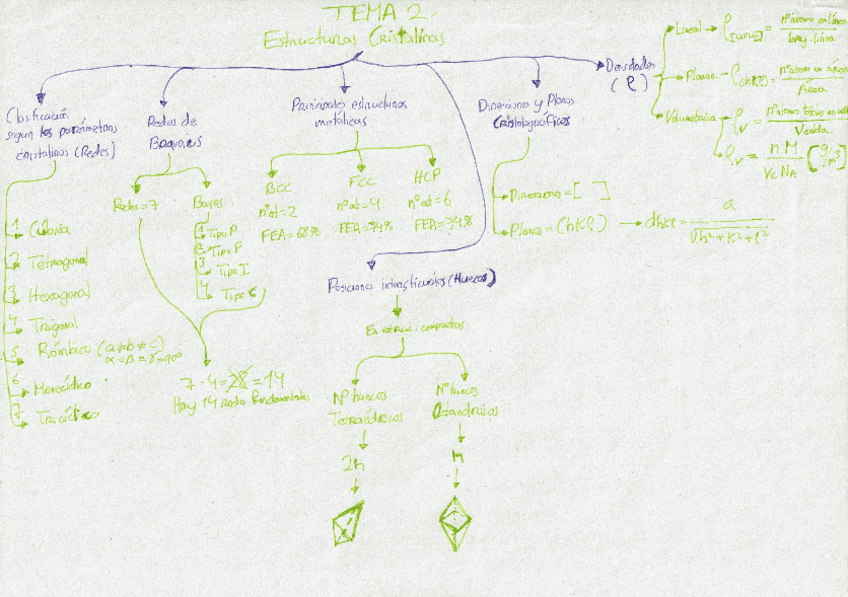 TEMA 2.
Estructuras Cristalinas
Clasificación
según los parámetros
cristalinos (Redes)
1 Cúbica
2 Tetragonal
3 Hexagonal
4 Trigonal
5 Rómbico (a≠b≠c)
α=β=γ=90º
6 Monoclínico
7 Triclínico
Redes de
Bravais
Redes=7
Bases
1 Tipo P
2 Tipo F
3 Tipo I
4 Tipo C
7·4=28=14
Hay 14 redes fundamentales
Principales estructuras
metálicas
BCC
nºat=2
FEA=68%
FCC
nºat=4
FEA=74%
HCP
nºat=6
FEA=74%
Posiciones intersticiales (Huecos)
En estruc. compactas
Nº huecos
Tetraédricos
2n
Nº huecos
Octaedricos
n
Direcciones y Planos
Cristalográficos
Direcciones=[ ]
Planos=(hkl) → dhkl = a / √h²+k²+l²
Densidades
(ρ)
Lineal → ρ[uvw] = nºátomos en línea
Planar → ρ(hkl) = nºátomos en área / Área
Volumétrica → ρv = / Vcelda
ρv = n M / Vc NA